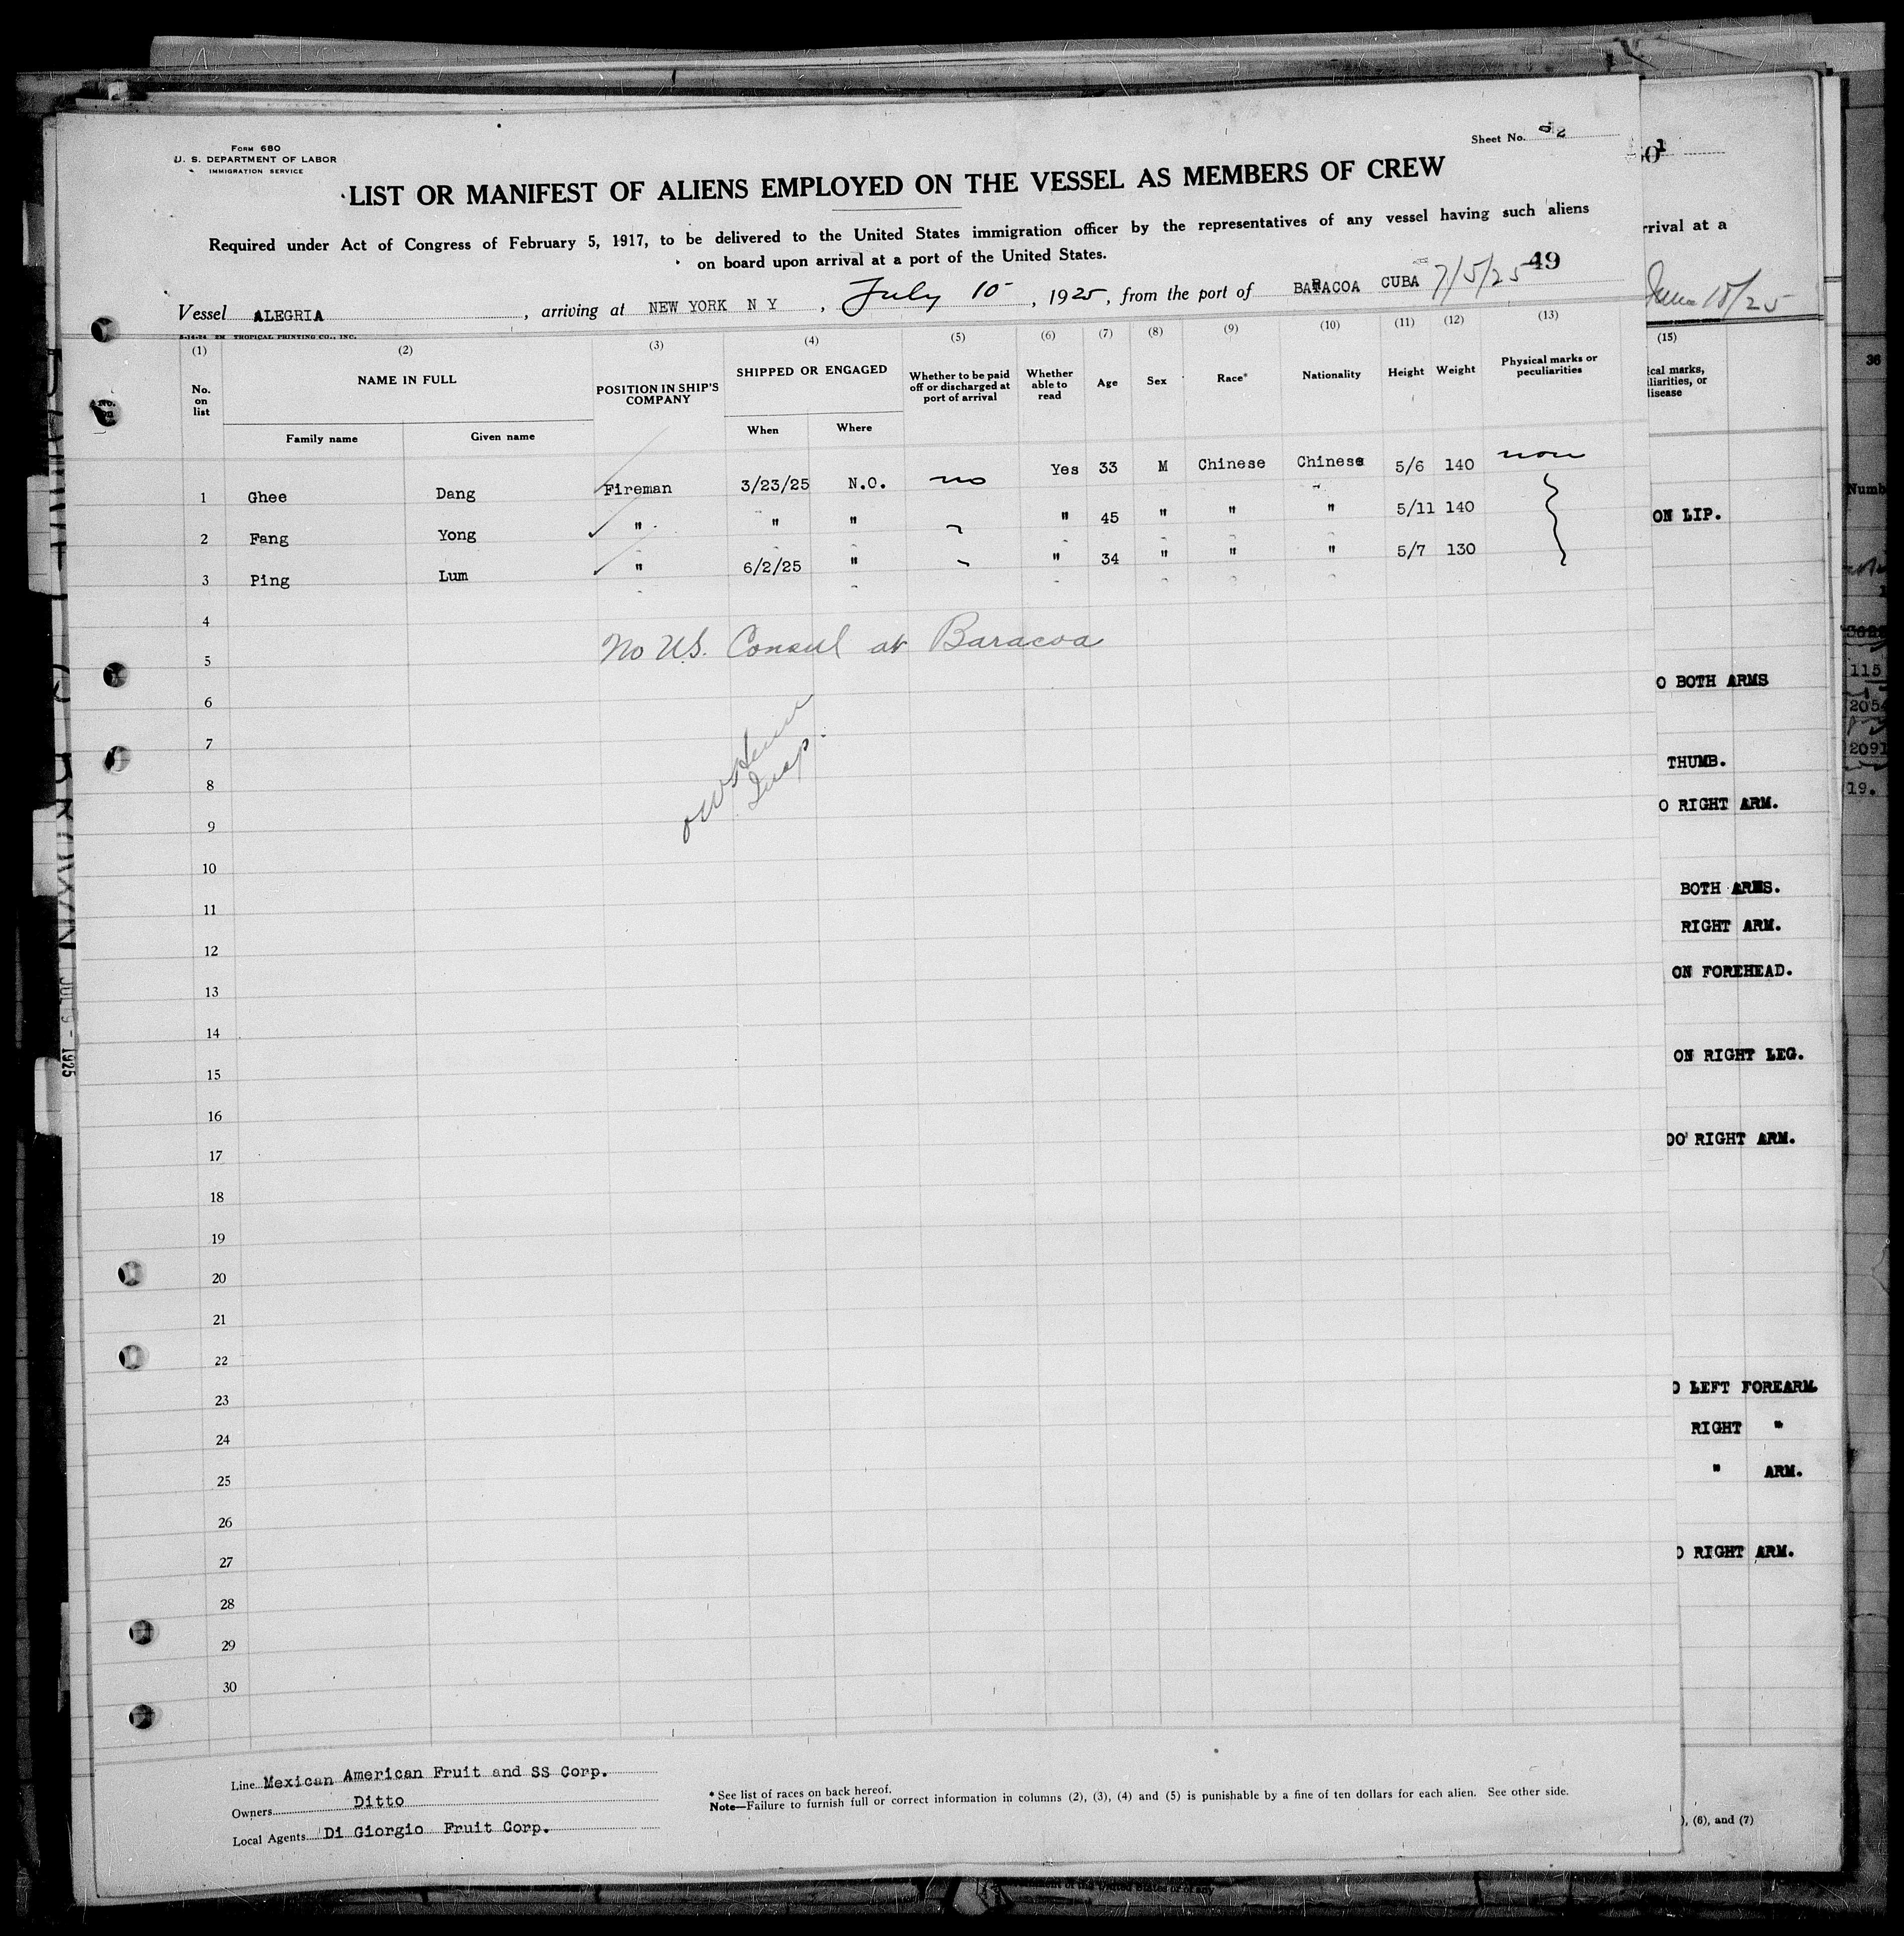 Form 680
U. S. DEPARTMENT OF LABOR
IMMIGRATION SERVICE
Sheet No. 2
LIST OR MANIFEST OF ALIENS EMPLOYED ON THE VESSEL AS MEMBERS OF CREW
Required under Act of Congress of February 5, 1917, to be delivered to the United States immigration officer by the representatives of any vessel having such aliens
on board upon arrival at a port of the United States.
49
Vessel ALEGRIA, arriving at NEW YORK N Y, July 10, 1925, from the port of BARACOA CUBA 7/5/25
TROPICAL PRINTING CO., INC.
(1) (2) (3) (4) (5) (6) (7) (8) (9) (10) (11) (12) (13)
No. on list
NAME IN FULL
Family name Given name
POSITION IN SHIP'S COMPANY
SHIPPED OR ENGAGED
When Where
Whether to be paid off or discharged at port of arrival
Whether able to read
Age
Sex
Race*
Nationality
Height
Weight
Physical marks or peculiarities
1 Ghee Dang Fireman 3/23/25 N.O. no Yes 33 M Chinese Chinese 5/6 140 non
2 Fang Yong " " " " 45 " " " 5/11 140
3 Ping Lum " 6/2/25 " " 34 " " " 5/7 130
4
5
No U.S. Consul at Baracoa
6
7
8
9
Insp.
10
11
12
13
14
15
16
17
18
19
20
21
22
23
24
25
26
27
28
29
30
Line Mexican American Fruit and SS Corp.
Owners Ditto
Local Agents Di Giorgio Fruit Corp.
* See list of races on back hereof.
Note—Failure to furnish full or correct information in columns (2), (3), (4) and (5) is punishable by a fine of ten dollars for each alien. See other side.
arrival at a
June 18/25
(15)
ON LIP.
O BOTH ARMS
THUMB.
O RIGHT ARM.
BOTH ARMS.
RIGHT ARM.
ON FOREHEAD.
ON RIGHT LEG.
OO RIGHT ARM.
O LEFT FOREARM.
RIGHT "
" ARM.
O RIGHT ARM.
), (6), and (7)
36
115
2054
2091
19.
1925